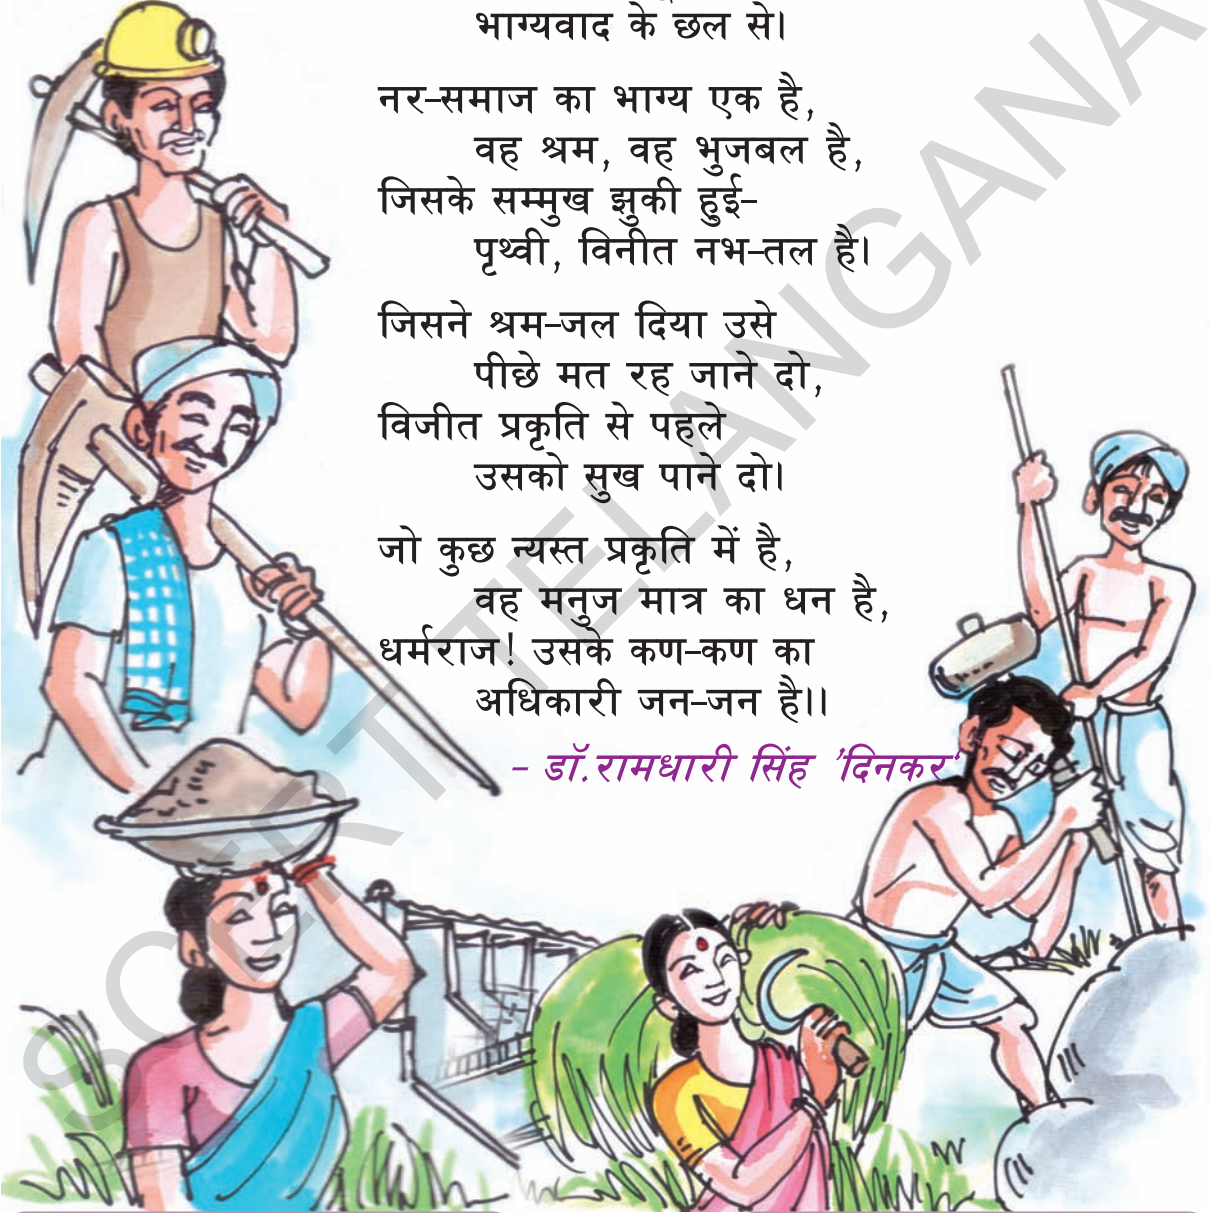 भाग्यवाद के छल से।
नर-समाज का भाग्य एक है,
वह श्रम, वह भुजबल है,
जिसके सम्मुख झुकी हुई-
पृथ्वी, विनीत नभ-तल है।
जिसने श्रम-जल दिया उसे
पीछे मत रह जाने दो,
विजीत प्रकृति से पहले
उसको सुख पाने दो।
जो कुछ न्यस्त प्रकृति में है,
वह मनुज मात्र का धन है,
धर्मराज! उसके कण-कण का
अधिकारी जन-जन है।।
- डॉ.रामधारी सिंह 'दिनकर'
SCERT TELANGANA